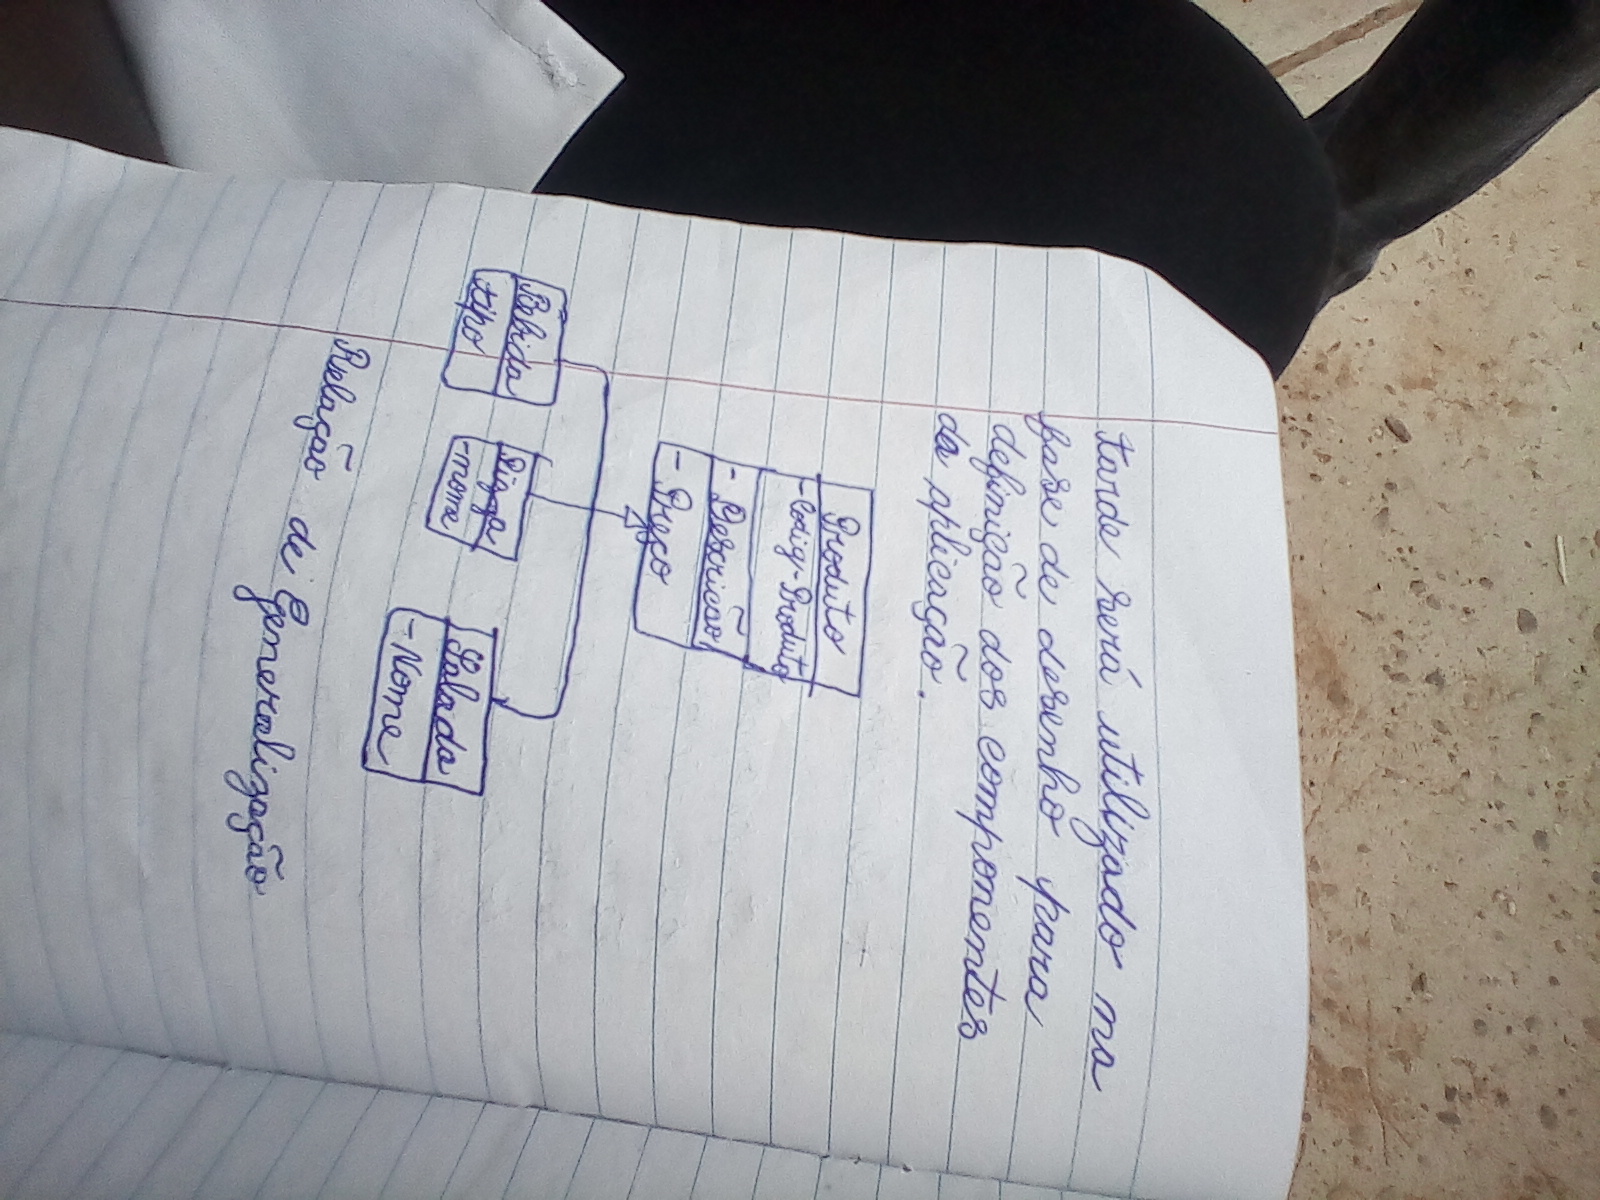 tarde será utilizado na
fase de desenho para
definição dos componentes
da aplicação.
Produto
- Codig-Produto
- Descrição
- Preço
Bebida
tipo
Pizza
- nome
Salada
- Nome
Relação de Generalização